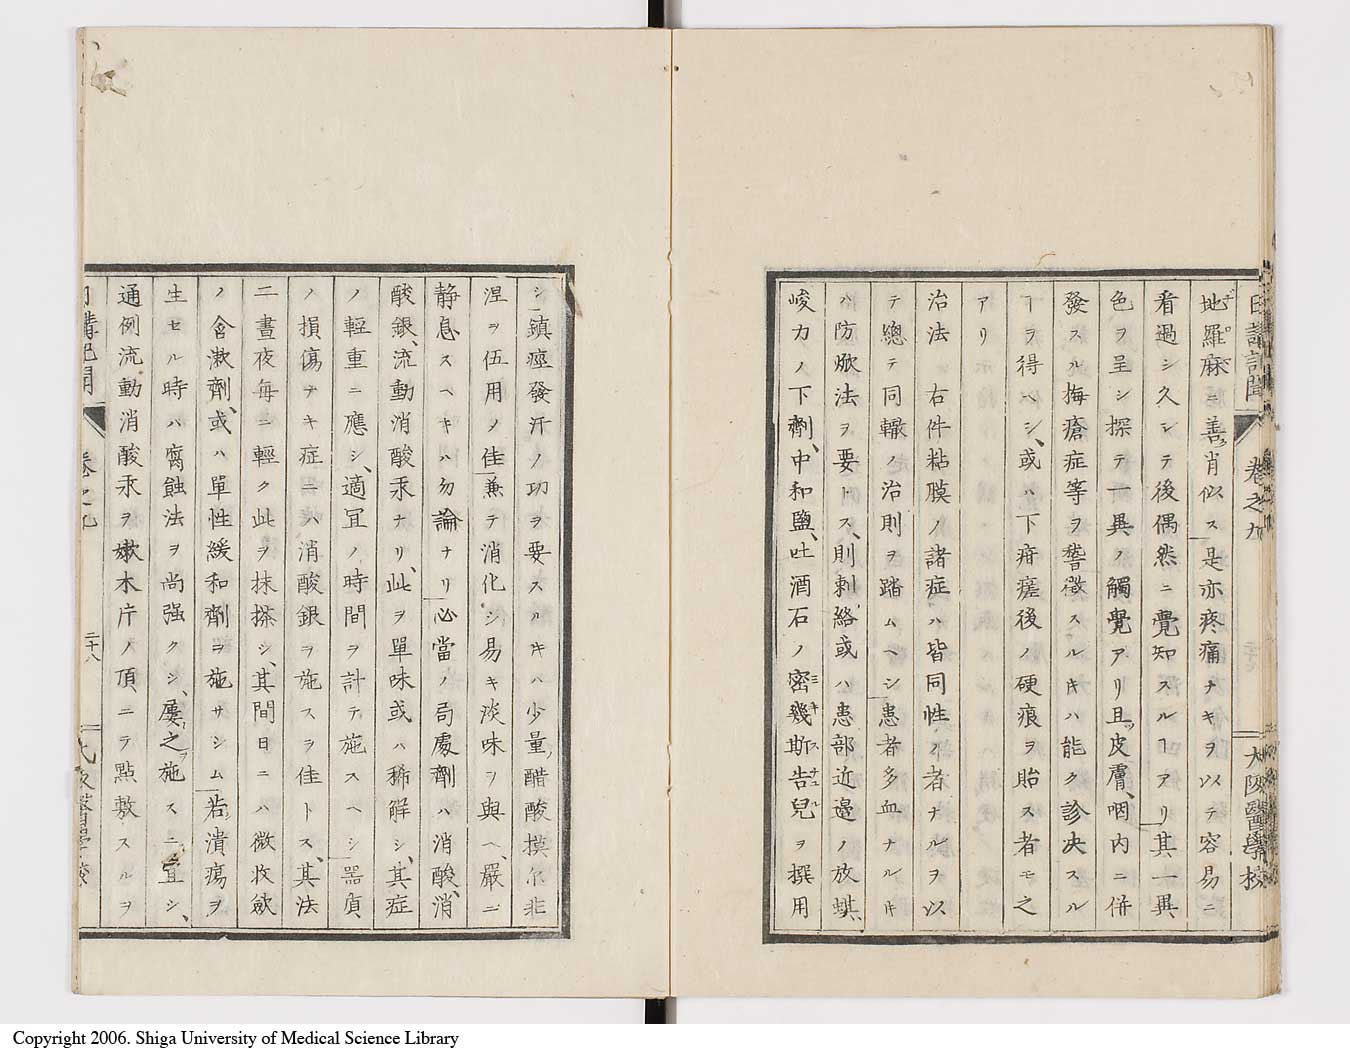 日講記聞 卷之九 大阪醫學校
地羅麻ニ善ク肖似ス是亦疼痛ナキヲ以テ容易ニ
看過シ久シテ後偶然ニ覺知スルヿアリ其一異
色ヲ呈シ探テ一異ノ觸覺アリ且ツ皮膚、咽内ニ併
發スル梅瘡症等ヲ誓徴スルキハ能ク診决スル
ヿヲ得ヘシ、或ハ下疳瘥後ノ硬痕ヲ貽ス者モ之
アリ
治法 右件粘膜ノ諸症ハ皆同性ノ者ナルヲ以
テ總テ同轍ノ治則ヲ踏ムヘシ患者多血ナルキ
ハ防焮法ヲ要トス、則刺絡、或ハ患部近邉ノ放蜞、
峻力ノ下劑、中和鹽、吐酒石ノ密幾斯告兒ヲ撰用
シ鎮痙發汗ノ功ヲ要スルキハ少量、醋酸摸尓非
涅ヲ伍用メ佳兼テ消化シ易キ淡味ヲ與ヘ、嚴ニ
静息スヘキハ勿論ナリ必當ノ局處劑ハ消酸、消
酸銀、流動消酸汞ナリ、此ヲ單味或ハ稀解シ、其症
ノ輕重ニ應シ、適冝ノ時間ヲ計テ施スヘシ器質
ノ損傷ナキ症ニハ消酸銀ヲ施スヲ佳トス、其法
二晝夜毎ニ輕ク此ヲ抹搽シ、其間日ニハ微收斂
ノ含漱劑、或ハ單性緩和劑ヲ施サシム若潰瘍ヲ
生セル時ハ腐蝕法ヲ尚强クシ、屢之ヲ施スニ冝シ、
通例流動消酸汞ヲ嫩木片ノ頂ニテ點敷スルヲ
日講記聞 卷之九 二十八 大阪醫學校
Copyright 2006. Shiga University of Medical Science Library